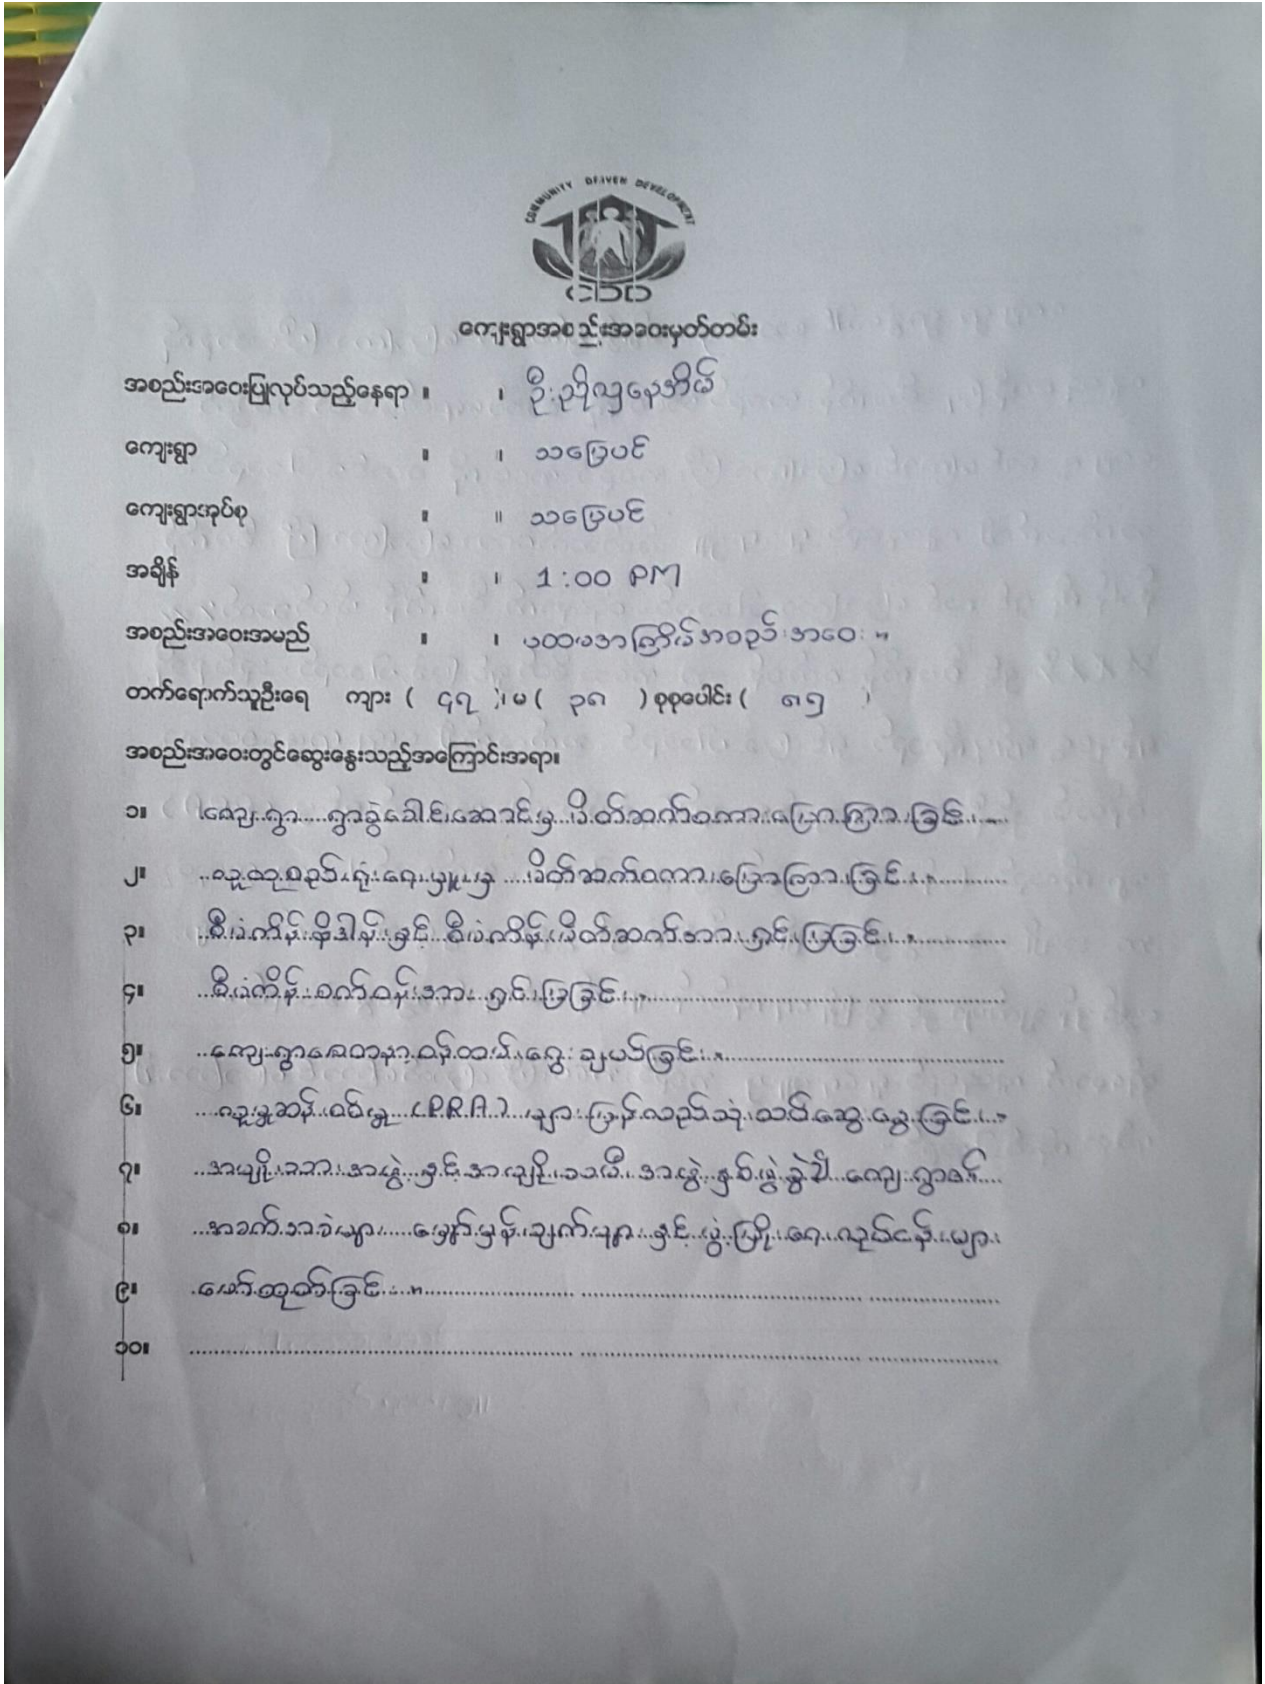 COMMUNITY DRIVEN DEVELOPMENT
CDD
ကျေးရွာအစည်းအဝေးမှတ်တမ်း
အစည်းအဝေးပြုလုပ်သည့်နေရာ ။ ။ ဦးညိုလှနေအိမ်
ကျေးရွာ ။ ။ သပြေပင်
ကျေးရွာအုပ်စု ။ ။ သပြေပင်
အချိန် ။ ။ 1:00 PM
အစည်းအဝေးအမည် ။ ။ ပထမအကြိမ်အစည်းအဝေး ။
တက်ရောက်သူဦးရေ ကျား ( ၄၇ )၊ မ ( ၃၈ ) စုစုပေါင်း ( ၈၅ )
အစည်းအဝေးတွင်ဆွေးနွေးသည့်အကြောင်းအရာ။
၁။ ကျေးရွာ ရွာခွဲခေါင်းဆောင်မှ မိတ်ဆက်စကားပြောကြားခြင်း ။
၂။ လူထုစည်းရုံးရေးမှူးမှ မိတ်ဆက်စကားပြောကြားခြင်း ။
၃။ စီမံကိန်းနိဒါန်းနှင့် စီမံကိန်းမိတ်ဆက်အားရှင်းပြခြင်း ။
၄။ စီမံကိန်းစက်ဝန်းအား ရှင်းပြခြင်း ။
၅။ ကျေးရွာစေတနာ့ဝန်ထမ်းရွေးချယ်ခြင်း ။
၆။ လူမှုဆန်းစစ်မှု (P.R.A) များပြန်လည်သုံးသပ်ဆွေးနွေးခြင်း ။
၇။ အမျိုးသားအဖွဲ့နှင့်အမျိုးသမီးအဖွဲ့နှစ်ဖွဲ့ခွဲ၍ ကျေးရွာ၏
၈။ အခက်အခဲများ မျှော်မှန်းချက်များနှင့်ဖွံ့ဖြိုးရေးလုပ်ငန်းများ
၉။ ဖော်ထုတ်ခြင်း ။
၁၀။